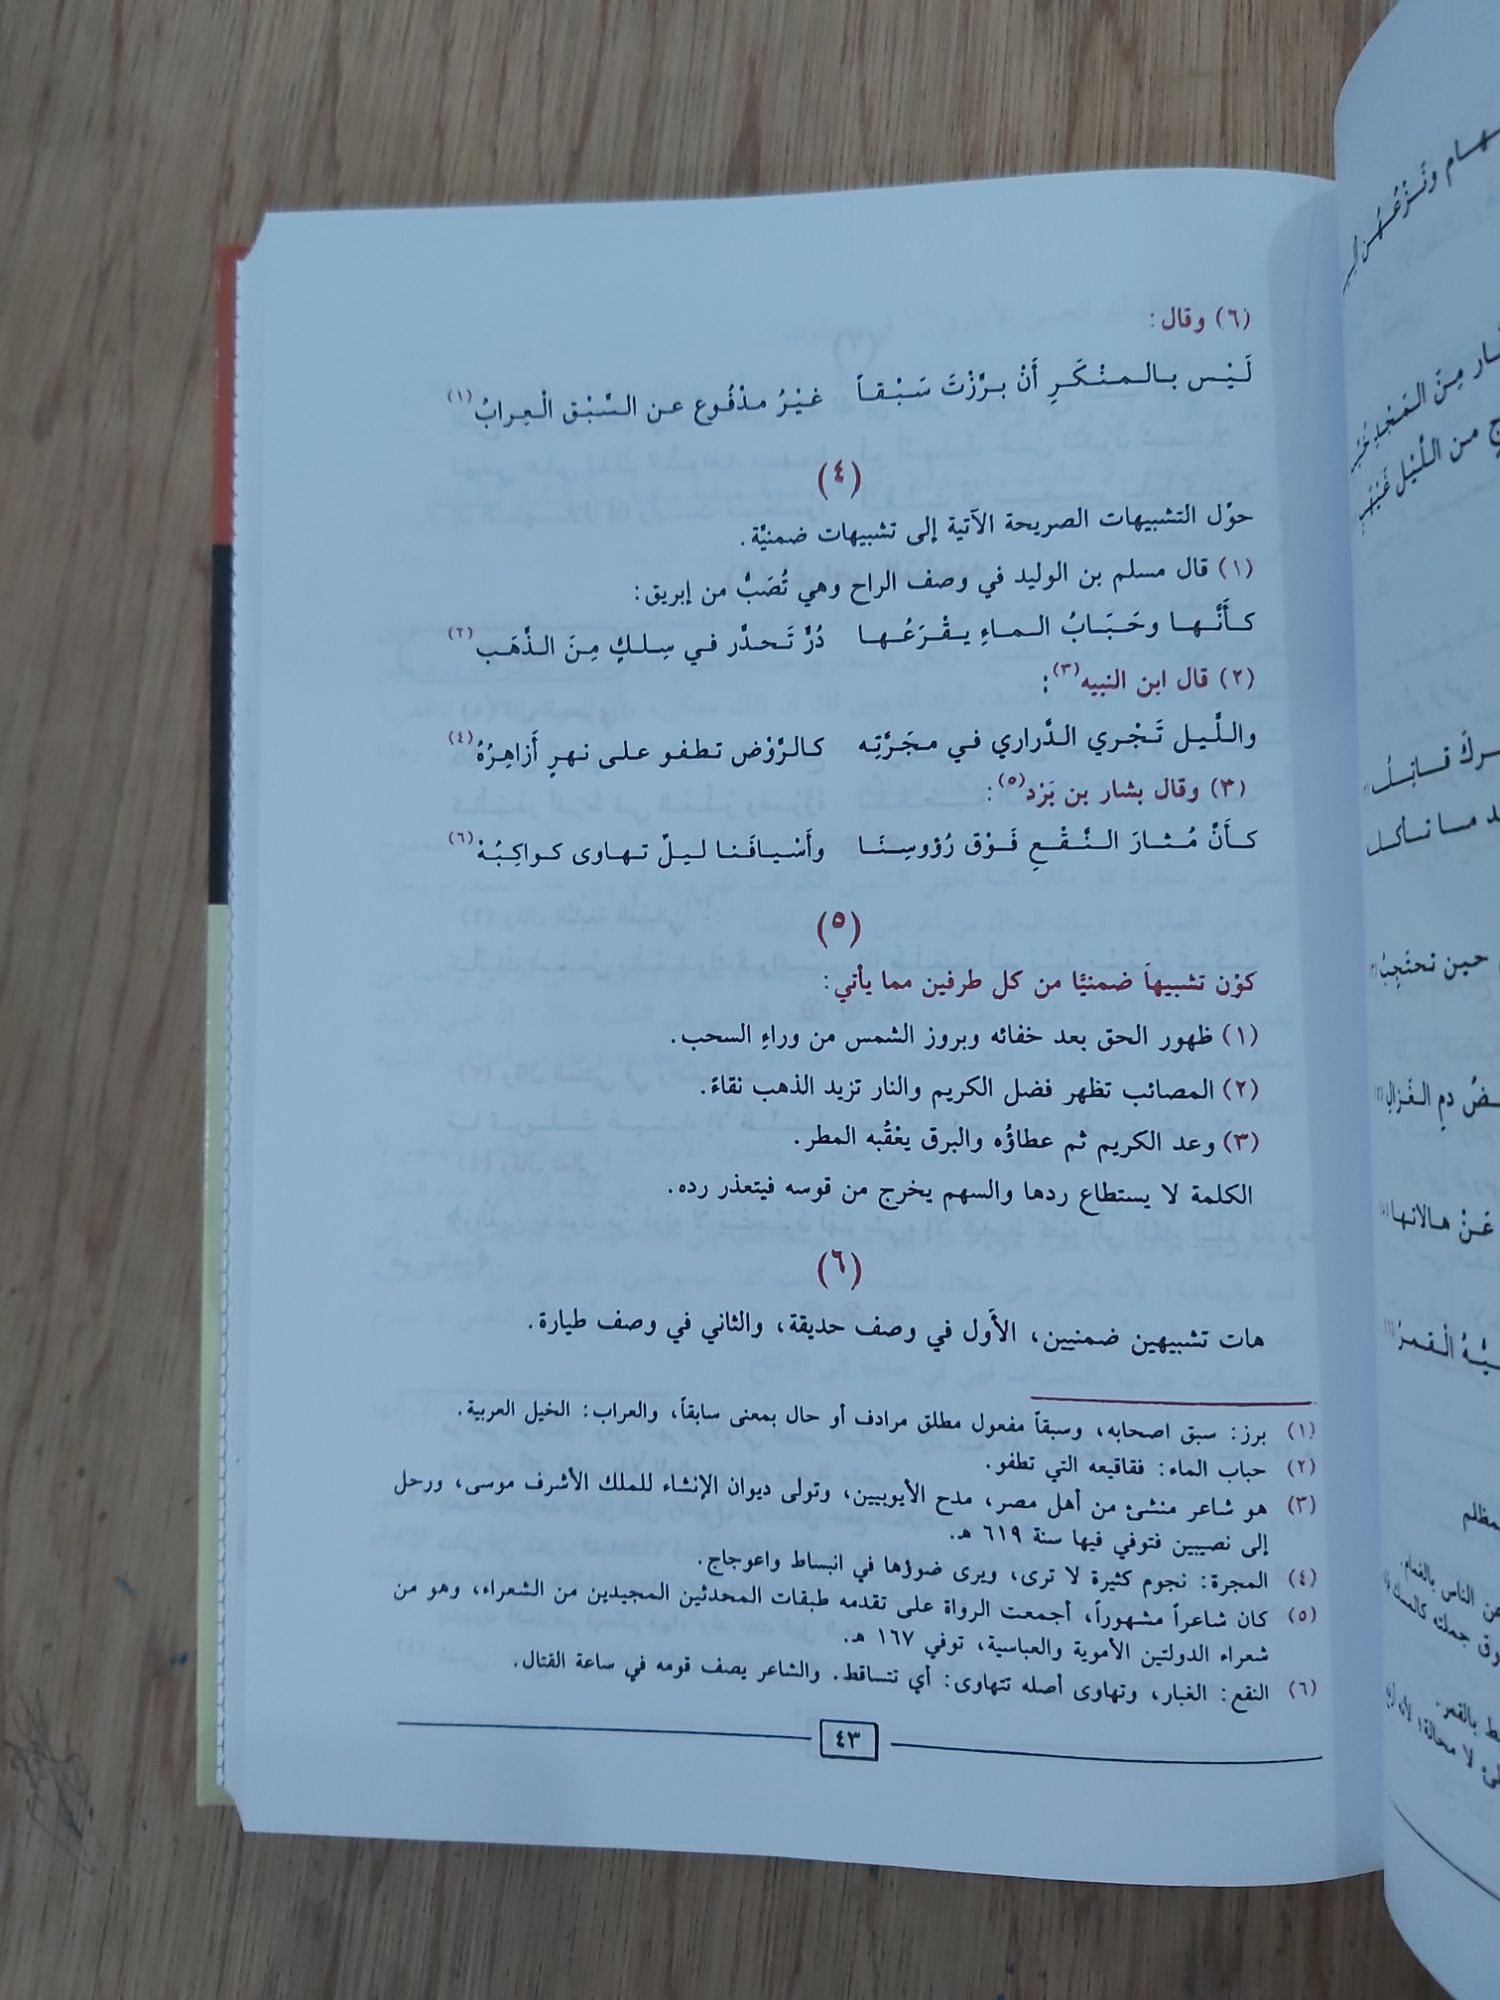 (٦) وقال:
لَيْس بالمنْكَرِ أَنْ برَّزْتَ سَبْقاً غيْرُ مدْفُوع عن السَّبْق الْعِرابُ(١)
(٤)
حوّل التشبيهات الصريحة الآتية إلى تشبيهات ضمنيَّة.
(١) قال مسلم بن الوليد في وصف الراح وهي تُصَبُّ من إبريق:
كأَنَّها وحَبَابُ الماءِ يقْرَعُها دُرٌّ تَحدَّر في سِلكٍ مِنَ الذَّهَب(٢)
(٢) قال ابن النبيه(٣):
واللَّيل تَجْري الدَّراري في مجَرَّتِه كالرَّوْض تطفو على نهرٍ أَزاهِرُهُ(٤)
(٣) وقال بشار بن بَرْد(٥):
كأَنَّ مُثارَ النَّقْعِ فَوْق رُؤوسِنَا وأَسْيافَنا ليلٌ تهاوى كواكِبُهْ(٦)
(٥)
كوّن تشبيهاً ضمنيًّا من كل طرفين مما يأتي:
(١) ظهور الحق بعد خفائه وبروز الشمس من وراءِ السحب.
(٢) المصائب تظهر فضل الكريم والنار تزيد الذهب نقاءً.
(٣) وعد الكريم ثم عطاؤُه والبرق يعْقُبه المطر.
الكلمة لا يستطاع ردها والسهم يخرج من قوسه فيتعذر رده.
(٦)
هات تشبيهين ضمنيين، الأَول في وصف حديقة، والثاني في وصف طيارة.
(١) برز: سبق اصحابه، وسبقاً مفعول مطلق مرادف أو حال بمعنى سابقاً، والعراب: الخيل العربية.
(٢) حباب الماء: فقاقيعه التي تطفو.
(٣) هو شاعر منشئ من أهل مصر، مدح الأيوبيين، وتولى ديوان الإنشاء للملك الأشرف موسى، ورحل
إلى نصيبين فتوفي فيها سنة ٦١٩ هـ.
(٤) المجرة: نجوم كثيرة لا ترى، ويرى ضوؤها في انبساط واعوجاج.
(٥) كان شاعراً مشهوراً، أجمعت الرواة على تقدمه طبقات المحدثين المجيدين من الشعراء، وهو من
شعراء الدولتين الأموية والعباسية، توفي ١٦٧ هـ.
(٦) النقع: الغبار، وتهاوى أصله تتهاوى: أي تتساقط. والشاعر يصف قومه في ساعة القتال.
٤٣
من الليل
ما نأكل
حين تحتجِبُ
دمِ الغَزالِ
عَنْ هالاتها
من الناس بالغمام.
بالقمر.
لا محالة؛ لأن